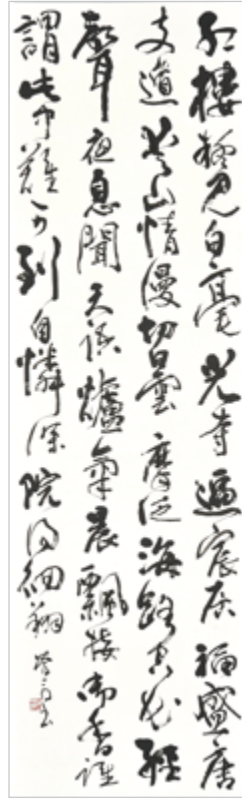 紅樓疑見白毫光寺逼宸居福盛唐
支遁愛山情漫切曇摩泛海路空長經
聲夜息聞天語爐氣晨飄接御香誰
謂此中難可到自憐深院得徊翔